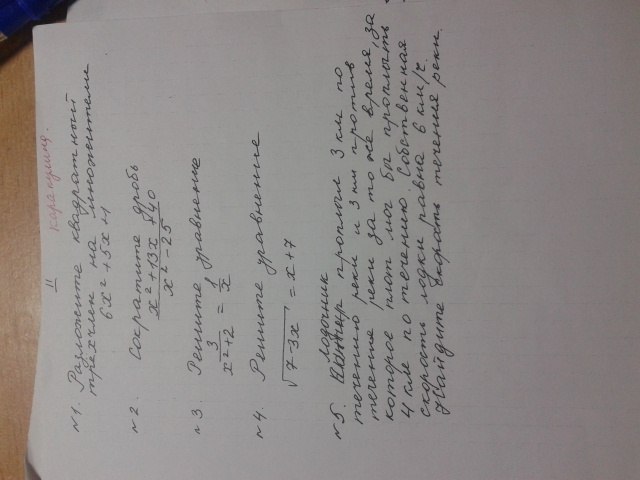 II
№1. Разложите квадратный
трёхчлен на множители
6x² + 5x + 1
№2. Сократите дробь
x² + 13x + 40
x² - 25
№3. Решите уравнение
3/(x²+2) = 1/x
№4. Решите уравнение
√(7-3x) = x+7
лодочник
№5. проплыл 3 км по
течению реки и 3 км против
течение реки за то же время, за
которое плот мог бы проплыть
4 км по течению. Собственная
скорость лодки равна 6 км/ч.
Найдите скорость течения реки